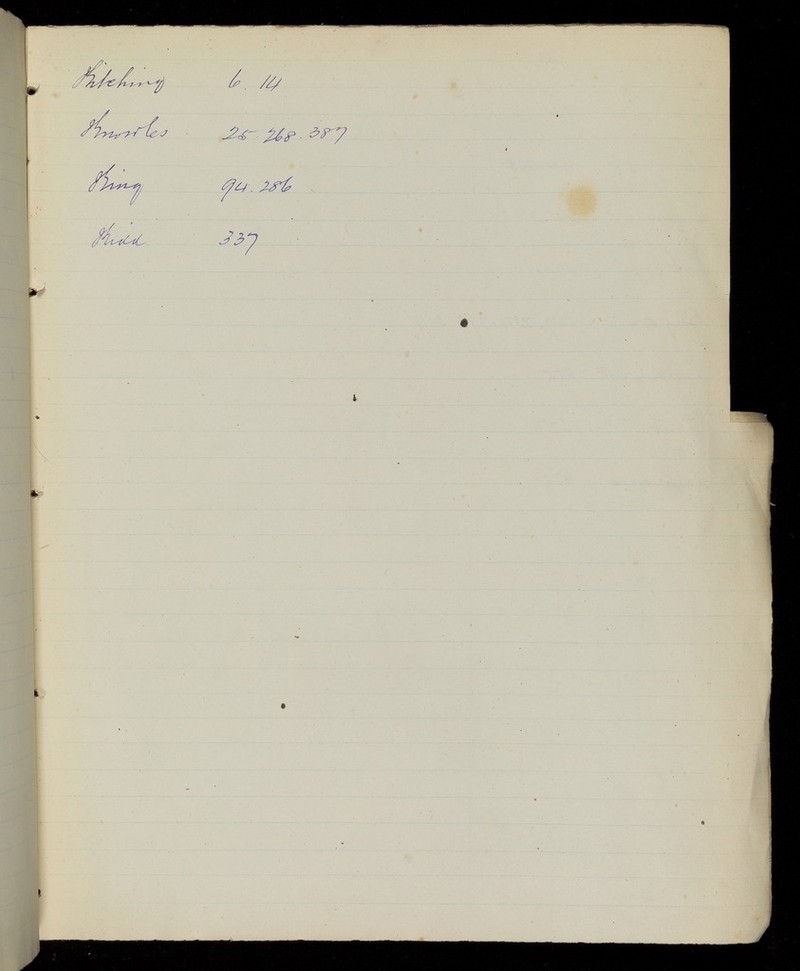 Kitching 6. 14
Knowles 25. 268. 387
King 94. 286
Kidd 337